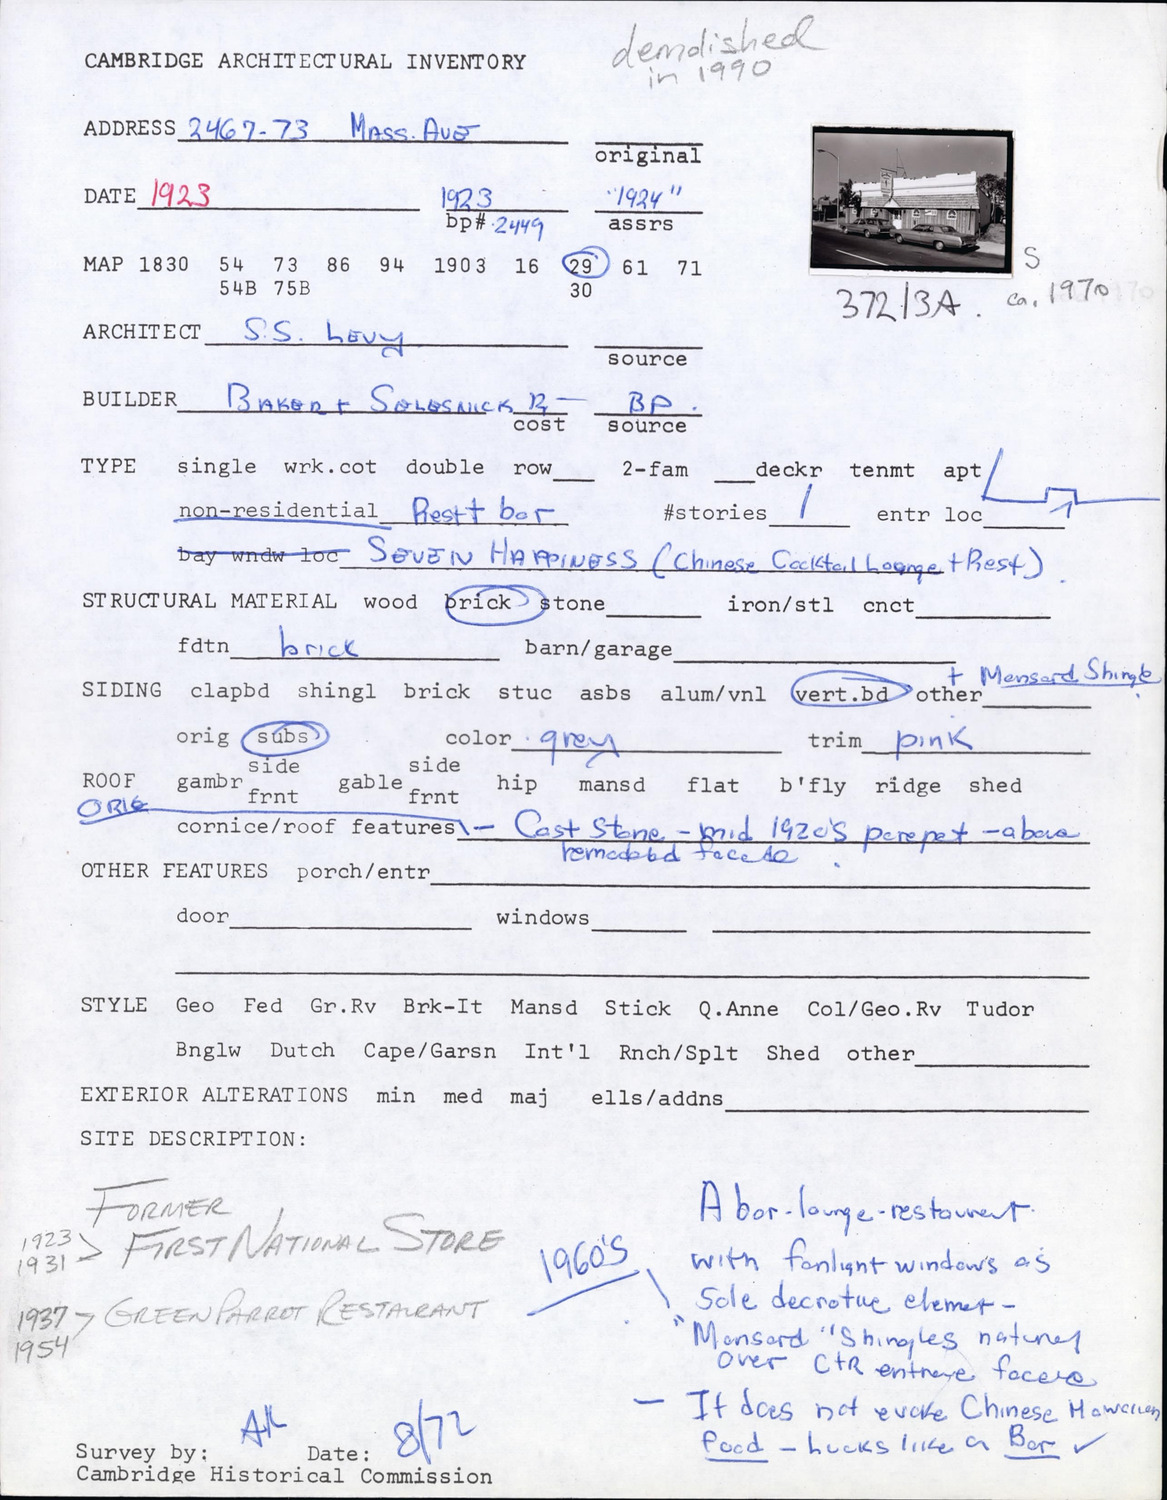 demolished
in 1990
CAMBRIDGE ARCHITECTURAL INVENTORY
ADDRESS 2467-73 Mass. Ave
original
DATE 1923 1923 "1924"
bp# 2449 assrs
MAP 1830 54 73 86 94 1903 16 29 61 71
54B 75B 30
S
372/3A. ca. 1970
ARCHITECT S.S. Levy
source
BUILDER Baker + Selesnick BP.
cost source
TYPE single wrk.cot double row 2-fam deckr tenmt apt
non-residential Rest + bar #stories 1 entr loc
bay wndw loc SEVEN HAPPINESS (Chinese Cocktail Lounge + Rest)
STRUCTURAL MATERIAL wood brick stone iron/stl cnct
fdtn brick barn/garage
+ Mansard Shingle
SIDING clapbd shingl brick stuc asbs alum/vnl vert.bd other
orig subs color grey trim pink
side side
ROOF gambr gable hip mansd flat b'fly ridge shed
frnt frnt
ORIG
cornice/roof features - Cast Stone - mid 1920's parapet - above
remodeled facade
OTHER FEATURES porch/entr
door windows
STYLE Geo Fed Gr.Rv Brk-It Mansd Stick Q.Anne Col/Geo.Rv Tudor
Bnglw Dutch Cape/Garsn Int'l Rnch/Splt Shed other
EXTERIOR ALTERATIONS min med maj ells/addns
SITE DESCRIPTION:
FORMER
1923 FIRST NATIONAL STORE
1931
1937 GREEN PARROT RESTAURANT
1954
1960'S
A bar-lounge-restaurant
with fanlight windows as
Sole decrotive element -
"Mansard" Shingles natural
over CTR entrance facade
- It does not evoke Chinese Hawaiian
food - looks like a Bar ✓
Survey by: AK Date: 8/72
Cambridge Historical Commission